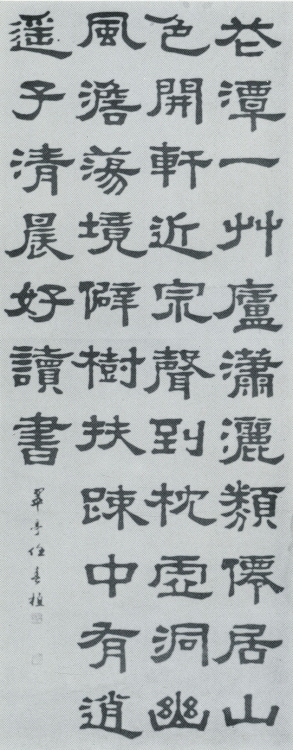 花潭一艸廬瀟灑類僊居山
色開軒近泉聲到枕虛洞幽
風澹蕩境僻樹扶踈中有逍
遙子清晨好讀書
翠亭任春植